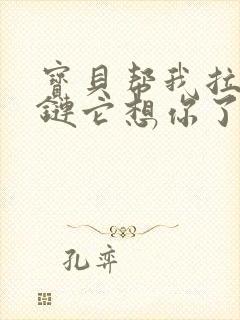 寶貝幫我拉
鏈它想你了
孔弈